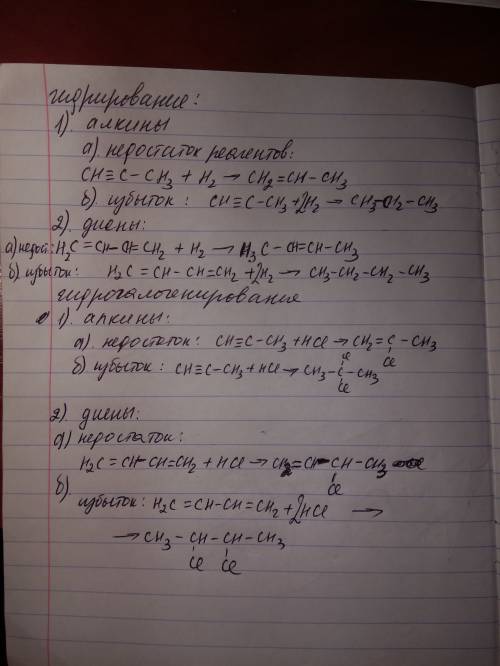 гидрирование:
1). алкины
а). недостаток реагентов:
CH≡C-CH₃ + H₂ → CH₂=CH-CH₃
б). избыток: CH≡C-CH₃ + 2H₂ → CH₃-CH₂-CH₃
2). диены:
а) недост: H₂C=CH-CH=CH₂ + H₂ → H₃C-CH=CH-CH₃
б) избыток: H₂C=CH-CH=CH₂ + 2H₂ → CH₃-CH₂-CH₂-CH₃
гидрогалогенирование
1). алкины:
а). недостаток: CH≡C-CH₃ + HCl → CH₂=C-CH₃
Cl
Cl
б) избыток: CH≡C-CH₃ + HCl → CH₃-C-CH₃
Cl
2). диены:
а) недостаток:
H₂C=CH-CH=CH₂ + HCl → CH₂=CH-CH-CH₃
Cl
б)
избыток: H₂C=CH-CH=CH₂ + 2HCl →
→ CH₃-CH-CH-CH₃
Cl Cl